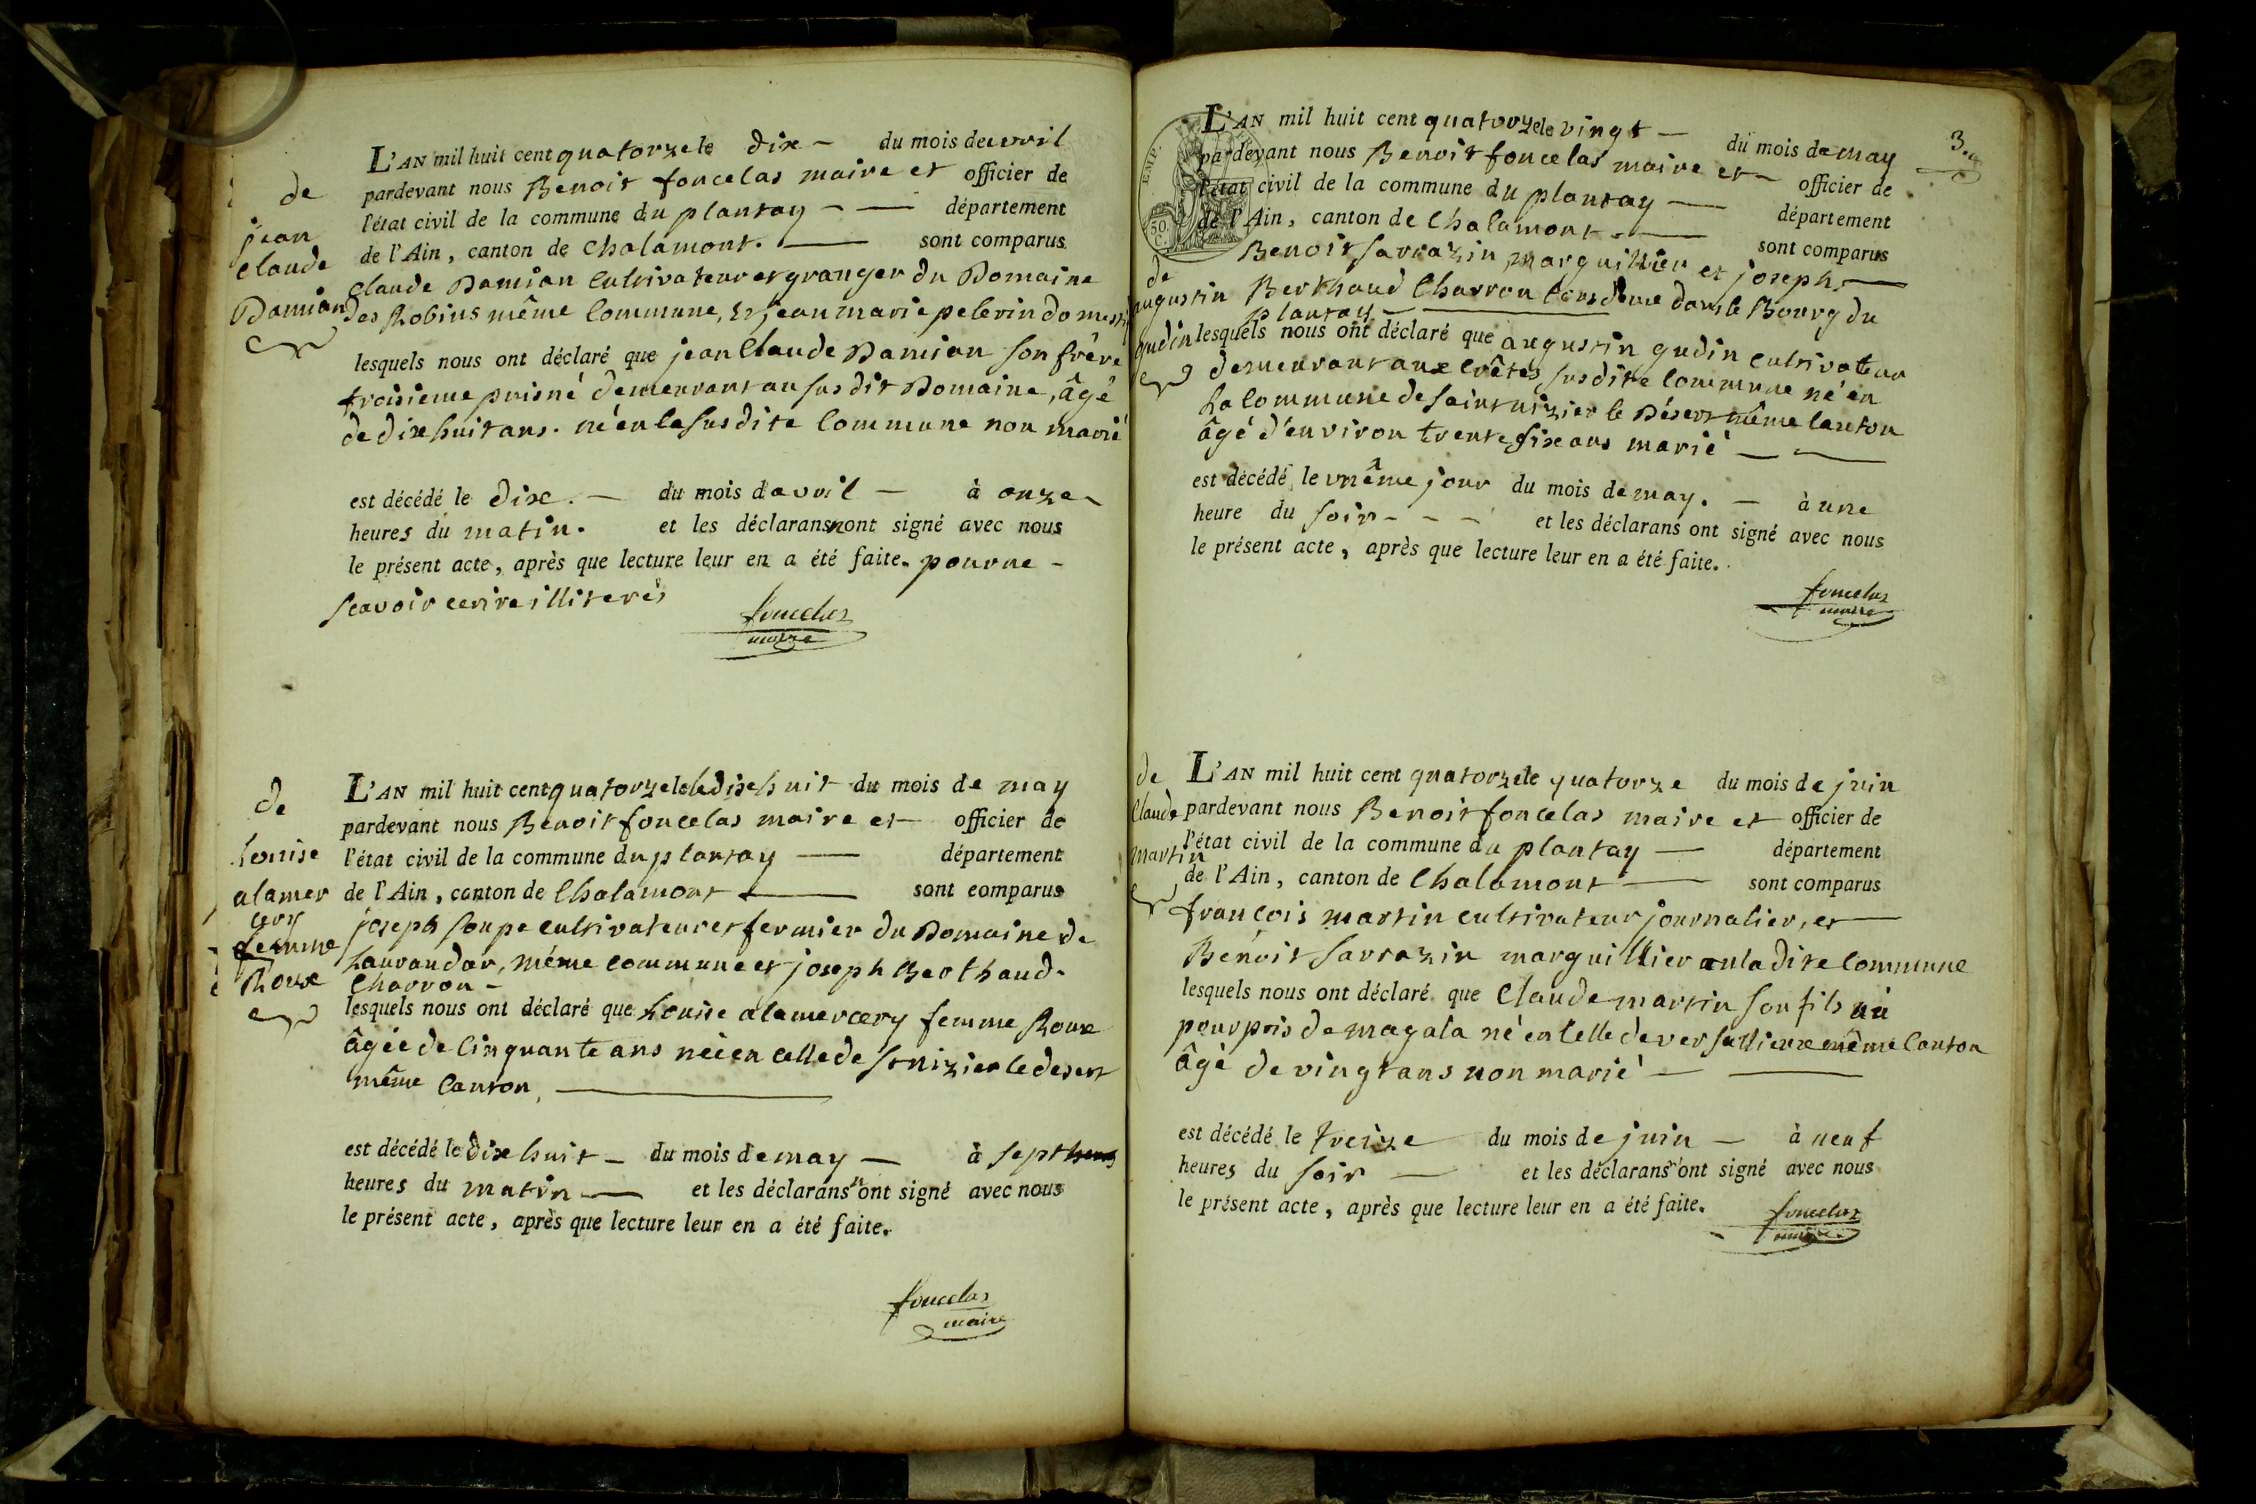 de
jean
Claude
Damian
L'AN mil huit cent quatorze le dix — du mois de avril
pardevant nous Benoit foncelas maire et officier de
l'état civil de la commune du plantay — — département
de l'Ain, canton de Chalamont. — sont comparus
Claude Damian Cultivateur et granger du Domaine
Des Robins même Commune, et jean marie pelerin domesti
lesquels nous ont déclaré que jean Claude Damian son frère
troisieme puisné demeurant au susdit Domaine, âgé
de dix huit ans. né en la susdite Commune non marié
est décédé le dix. — du mois d'avril — à onze
heures du matin. et les déclarans n'ont signé avec nous
le présent acte, après que lecture leur en a été faite. pour ne -
scavoir ecrire illiterés
foncelas
maire
de
Louise
alamer
cery
femme
Roux
L'AN mil huit cent quatorze le le dix huit du mois de may
pardevant nous Benoit foncelas maire et officier de
l'état civil de la commune du plantay — département
de l'Ain, canton de Chalamont — sont comparus
joseph soupe cultivateur et fermier du Domaine de
Lauvandar, même commune et joseph Berthaud.
Charron -
lesquels nous ont déclaré que Louise alamercery femme Roux
âgée de Cinquante ans née en celle de St nizier le desert
même Canton, —
est décédé le dix huit — du mois de may — à sept heures
heures du matin — et les déclarans n'ont signé avec nous
le présent acte, après que lecture leur en a été faite.
foncelas
maire
3.
EMP.
50.
C.
de
augustin
gudin
L'AN mil huit cent quatorze le vingt — du mois de may
pardevant nous Benoit foncelas maire et — officier de
l'état civil de la commune du plantay — département
de l'Ain, canton de Chalamont. — sont comparus
Benoit Sarrazin marguillier et joseph —
Berthaud Charron tous deux dans le Bourg du
plantay —
lesquels nous ont déclaré que augustin gudin cultivateur
demeurant aux Crêtes, susdite Commune né en
La Commune de saint nizier le Désert même Canton
âgé d'environ trente six ans marié — —
est décédé le même jour du mois de may. — à une
heure du soir - - - et les déclarans ont signé avec nous
le présent acte, après que lecture leur en a été faite.
foncelas
maire
de
Claude
martin
L'AN mil huit cent quatorze le quatorze du mois de juin
pardevant nous Benoit foncelas maire et officier de
l'état civil de la commune du plantay — département
de l'Ain, canton de Chalamont — sont comparus
françois martin cultivateur journalier, et —
Benoit Sarrazin marguillier en la dite Commune
lesquels nous ont déclaré que Claude martin son fils né
de magala né en celle de versallieux même Canton
âgé de vingt ans non marié — —
est décédé le treize du mois de juin — à neuf
heures du soir — et les déclarans n'ont signé avec nous
le présent acte, après que lecture leur en a été faite.
foncelas
maire